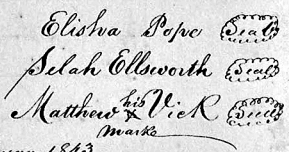 Elisha Pope Seal
Selah Ellsworth Seal
Matthew his x Vick Seal
marke
1843